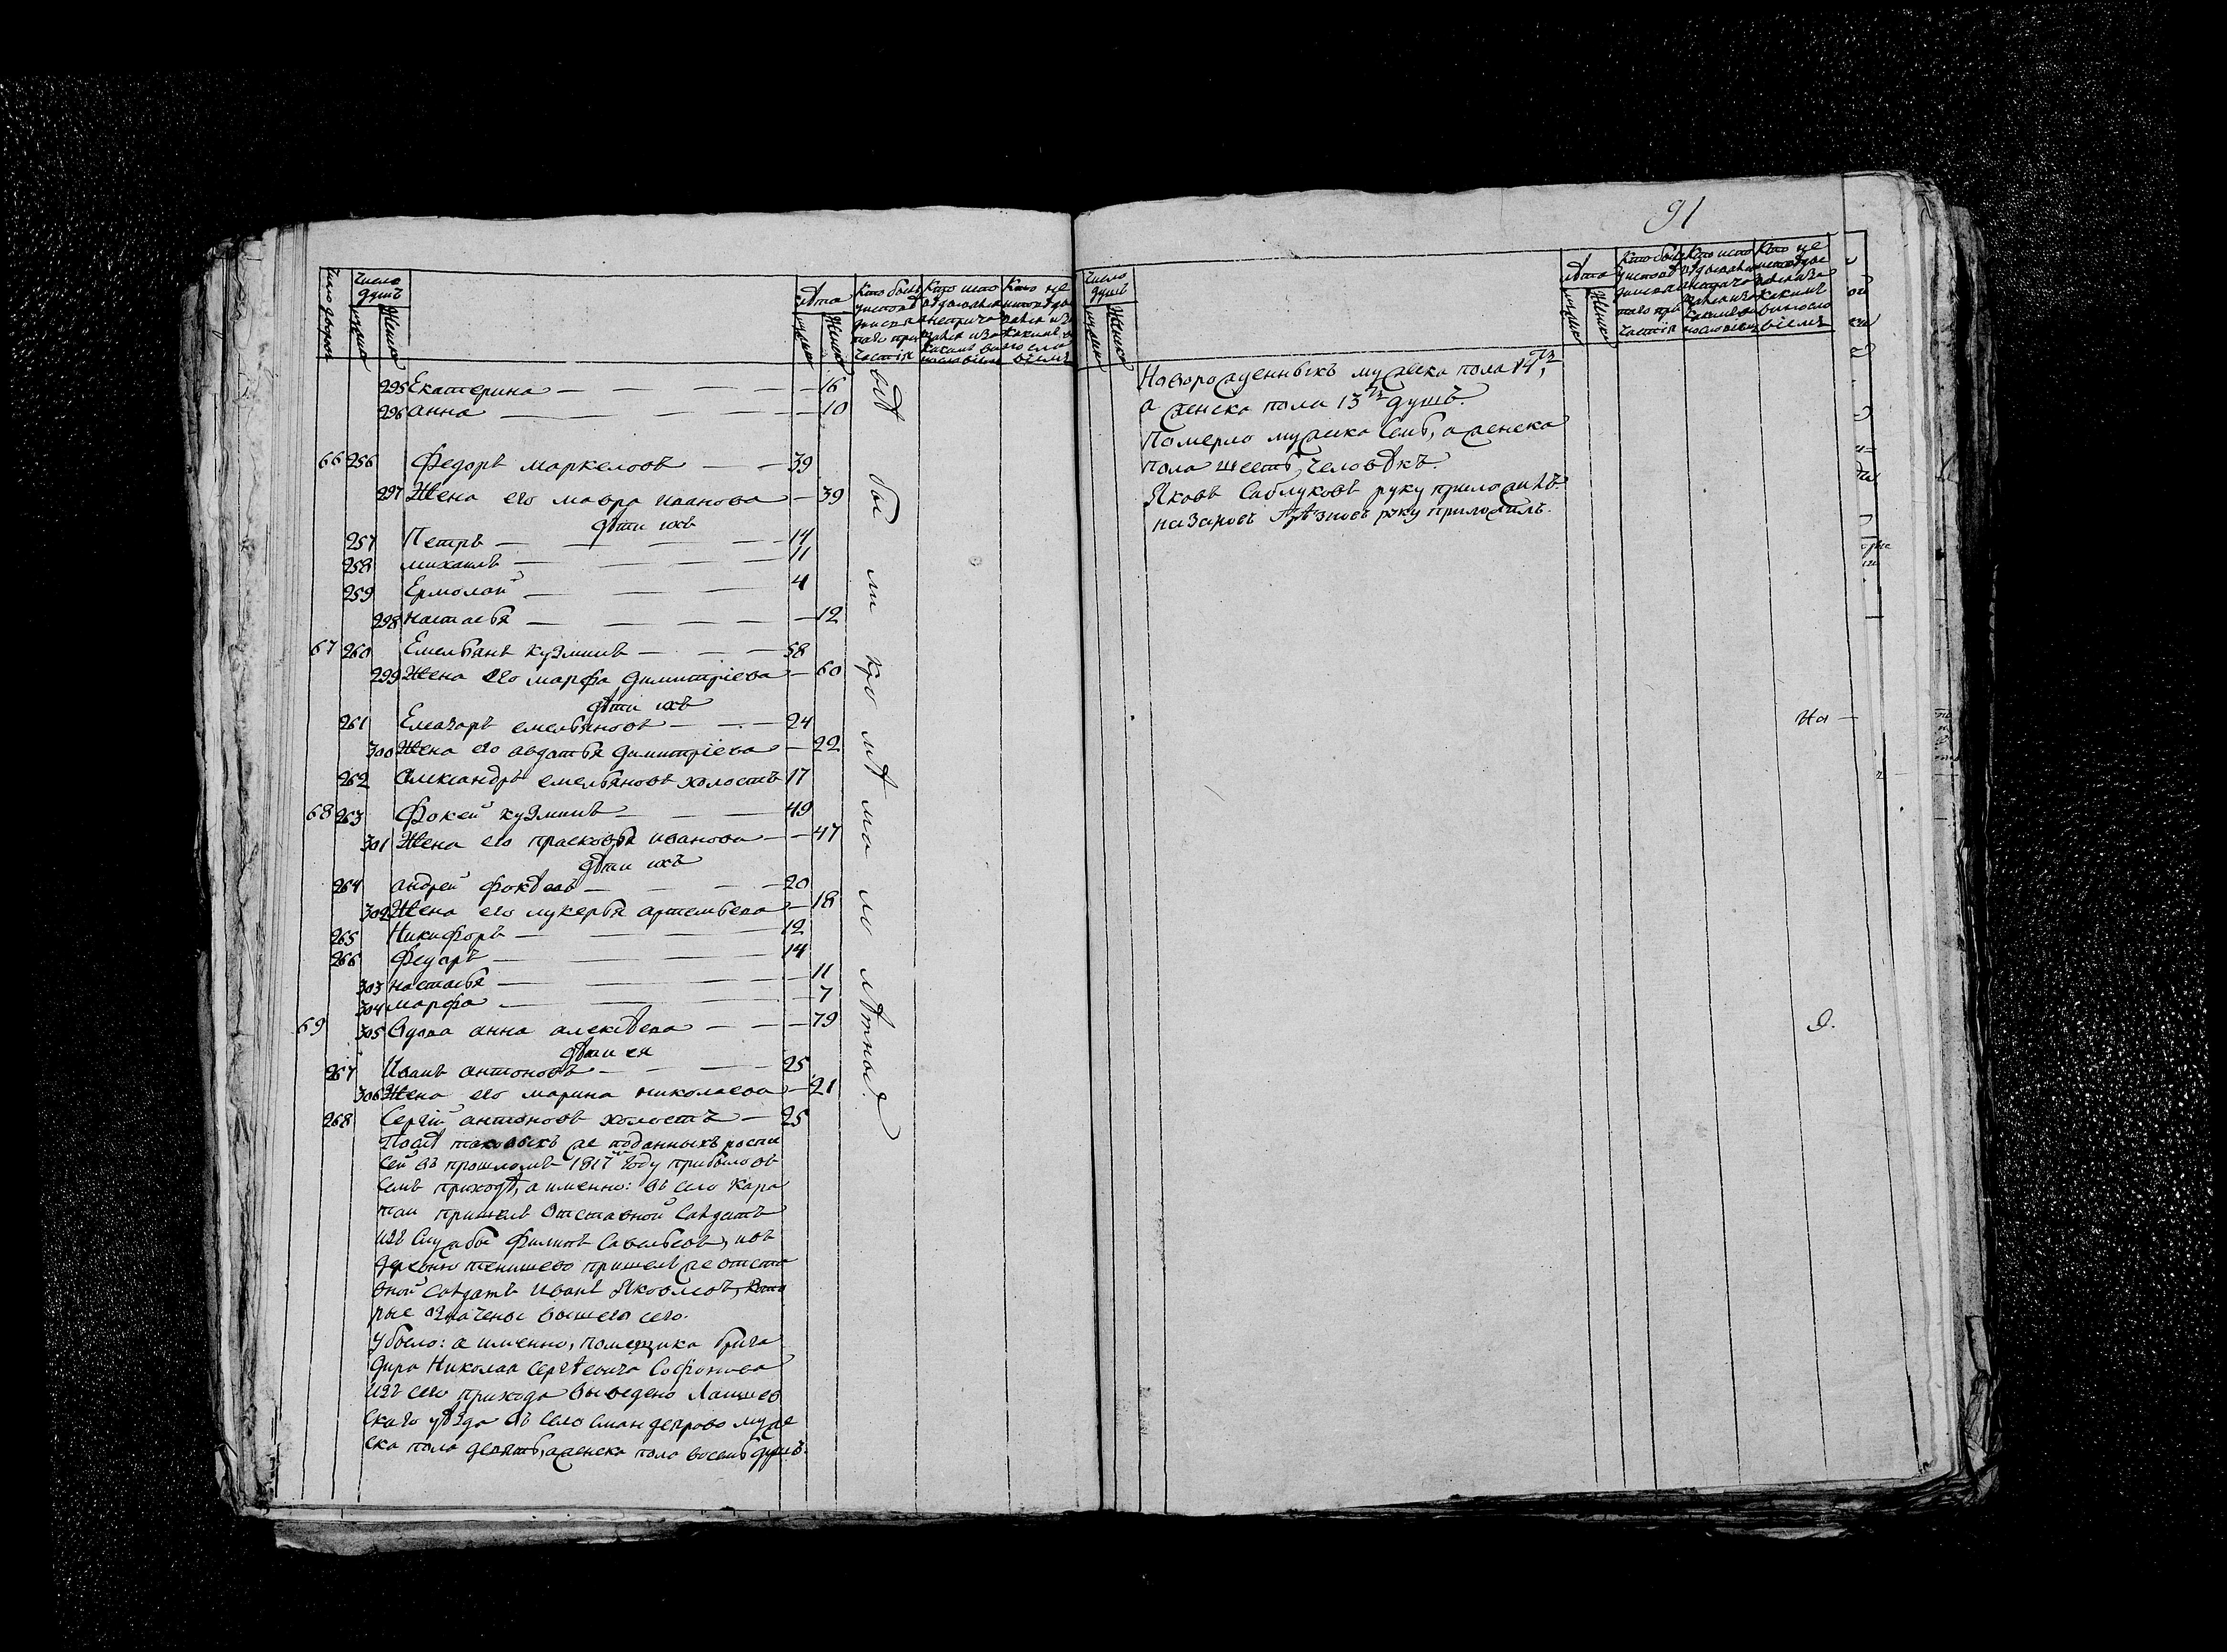 91
Число дворовъ
Число душъ
мужска
женска
лѣта
мужска
женска
Кто былъ у исповѣди и св. таго причастія
Кто исповѣдывался а не причащался и за какимъ винословіемъ
Кто не исповѣдывался и за какимъ винословіемъ
295 Екатерина — 16
296 анна — 10
66 256 Федоръ маркеловъ — 39
297 Жена его мавра иванова — 39
дѣти ихъ
257 Петръ — 14
258 михаилъ — 11
259 Ермолай — 4
298 настасья — 12
67 260 Емельянъ кузминъ — 58
299 Жена его марфа димитріева — 60
дѣти ихъ
261 Елеазаръ емельяновъ — 24
300 Жена его авдотья димитріева — 22
262 александръ емельяновъ холостъ 17
68 263 Фокей кузминъ — 49
301 Жена его прасковья иванова — 47
дѣти ихъ
264 андрей фокѣевъ — 20
302 Жена его лукерья артемьева — 18
265 Никифоръ — 12
266 Федоръ — 14
303 настасья — 11
304 марфа — 7
69 305 вдова анна алексѣева — 79
дѣти ея
267 Иванъ антоновъ — 25
306 Жена его марина николаева — 21
268 Сергій антоновъ холостъ — 25
Послѣ таковыхъ же поданныхъ роспи
сей въ прошломъ 1817м году прибыло въ
семъ приходѣ, а именно: въ село Кара
таи пришелъ Отставной Салдатъ
изъ Службы Филипъ Савельевъ, и въ
деревню тенишево пришелъ же отста
вной Салдатъ Иванъ Яковлевъ, Кото
рые означены вышего сего.
убыло: а именно, помещика брига
дира Николая Сергѣевича Софонова
изъ сего прихода выведено Лаишев
скаго уѣзда въ село муже
ска пола девять, а женска пола восемь душъ.
вѣ
бы
ли
кро
мѣ
ма
ло
лѣтныя
Число душъ
мужска
женска
лѣта
мужска
женска
Новорожденныхъ мужска пола 14ть
а женска пола 13ть душъ.
Померло мужска Семь, а женска
пола шесть человѣкъ.
Яковъ Саблуковъ руку приложилъ.
назаровъ руку приложилъ.